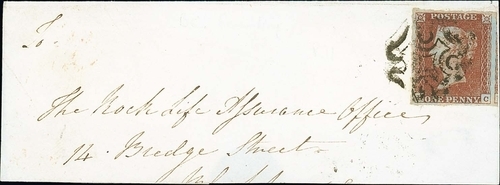 To.
POSTAGE
ONE PENNY C
The Rock Life Assurance Office,
14. Bridge Street.